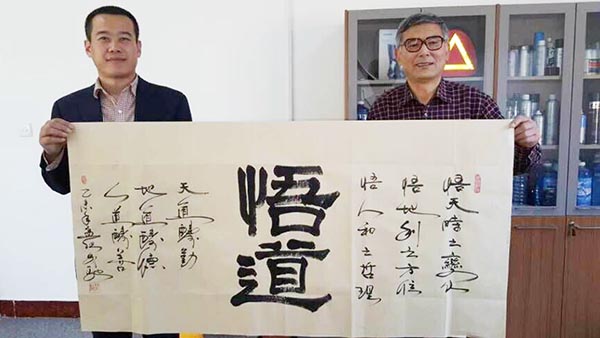 悟天時之變化
悟地利之方位
悟人和之哲理
悟道
天道酬勤
地道酬德
人道酬善
乙未年